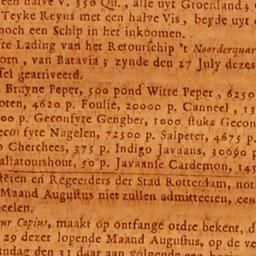 een halve v. 350 Qu., alle uyt Groenland;
Teyke Reyns met een halve Vis, beyde uyt
noch een Schip in het inkoomen.
te Lading van het Retourschip 't Noorderquar
orn, van Batavia; zynde den 27 July dezes
sel gearriveerd.
Bruyne Peper, 500 pond Witte Peper, 6250
oten, 4620 p. Foulie, 20000 p. Canneel, 13
00 p. Geconfyte Gengber, 1000 stuks Gecon
econfyte Nagelen, 72500 p. Salpeter, 4675 p.
o Cherchees, 375 p. Indigo Javaans, 30090 p
aliatourshout, 50 p. Javaanse Cardemon, 14
steren en Regeerders der Stad Rotterdam, not
Maand Augustus niet zullen admitteeren, een
eelen.
ur Copius, maakt op ontfange ordre bekent, d
29 dezer lopende Maand Augustus, op de ve
ndag den 31 daar aan volgende een